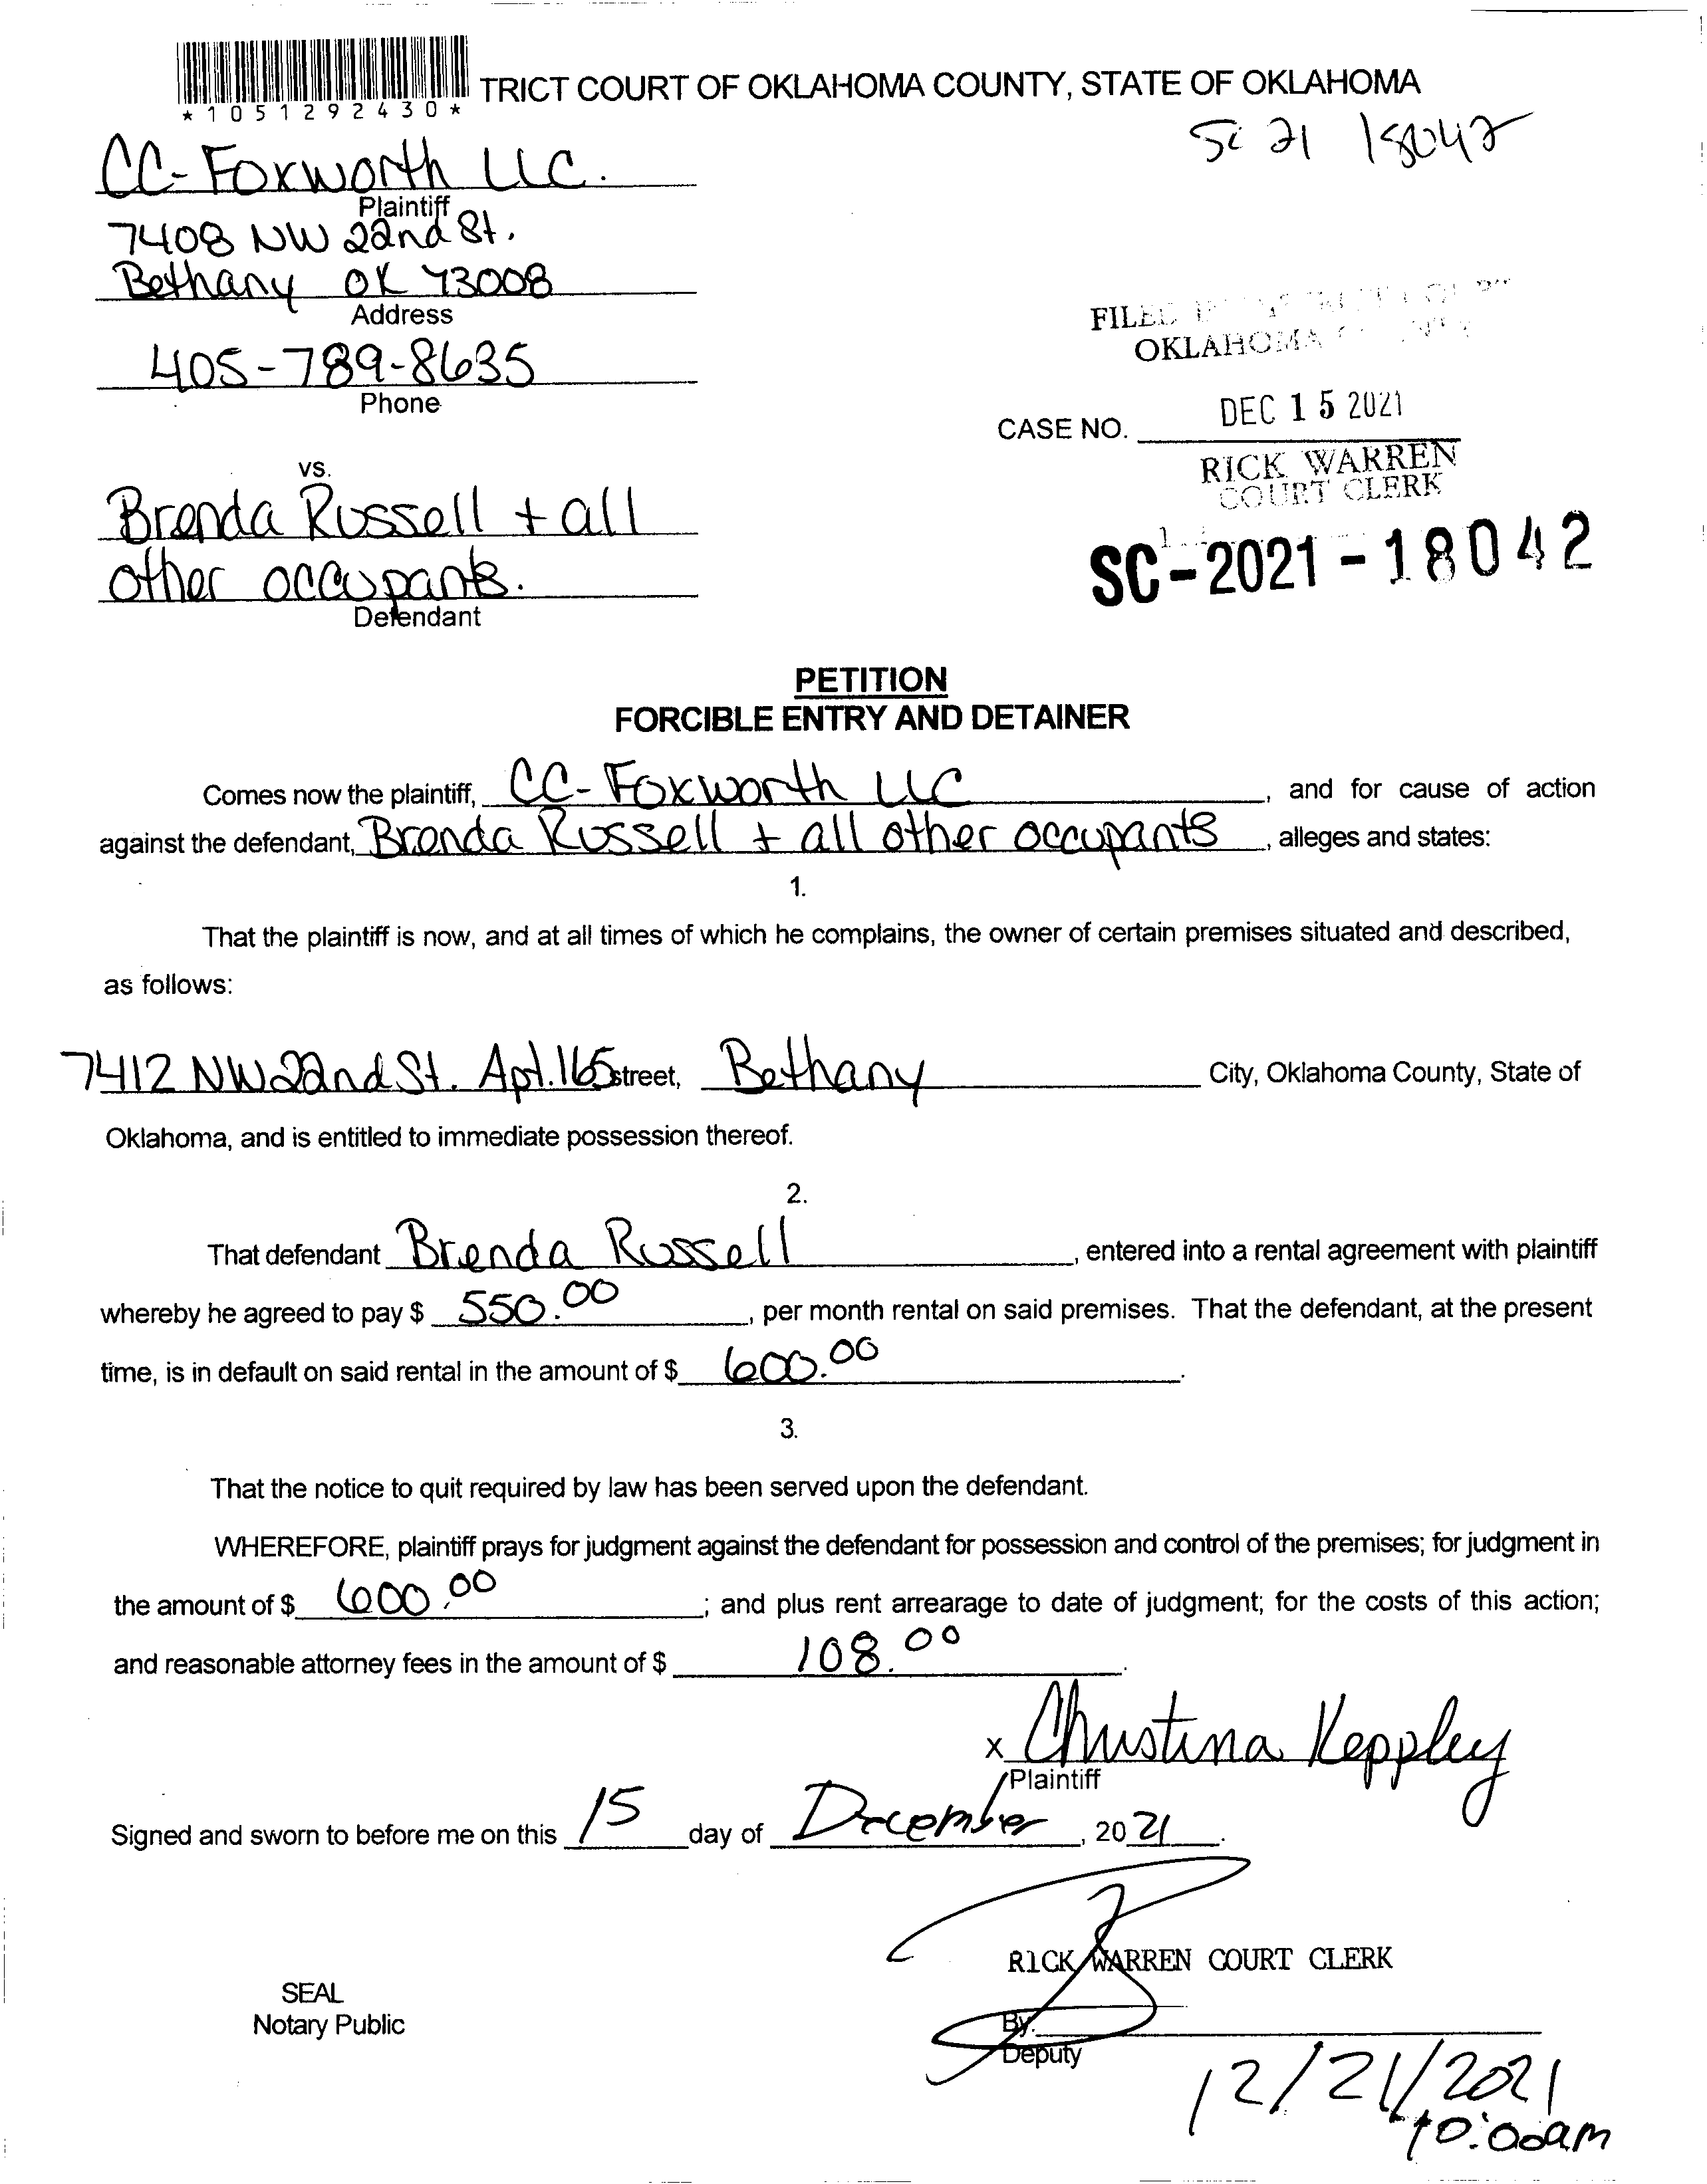 *1051292430*
TRICT COURT OF OKLAHOMA COUNTY, STATE OF OKLAHOMA
SC 21 18042
CC-Foxworth LLC.
Plaintiff
7408 NW 22nd St.
Bethany OK 73008
Address
405-789-8635
Phone
FILED
OKLAHOMA
CASE NO.
DEC 15 2021
RICK WARREN
COURT CLERK
SC-2021-18042
vs.
Brenda Russell + all
other occupants.
Defendant
PETITION
FORCIBLE ENTRY AND DETAINER
Comes now the plaintiff, CC-Foxworth LLC, and for cause of action
against the defendant, Brenda Russell + all other occupants, alleges and states:
1.
That the plaintiff is now, and at all times of which he complains, the owner of certain premises situated and described,
as follows:
7412 NW 22nd St. Apt. 165 street, Bethany City, Oklahoma County, State of
Oklahoma, and is entitled to immediate possession thereof.
2.
That defendant Brenda Russell, entered into a rental agreement with plaintiff
whereby he agreed to pay $ 550.00, per month rental on said premises. That the defendant, at the present
time, is in default on said rental in the amount of $ 600.00.
3.
That the notice to quit required by law has been served upon the defendant.
WHEREFORE, plaintiff prays for judgment against the defendant for possession and control of the premises; for judgment in
the amount of $ 600.00; and plus rent arrearage to date of judgment; for the costs of this action;
and reasonable attorney fees in the amount of $ 108.00.
x Christina Keppley
Plaintiff
Signed and sworn to before me on this 15 day of December, 2021.
RICK WARREN COURT CLERK
SEAL
Notary Public
By:
Deputy
12/21/2021
10:00am